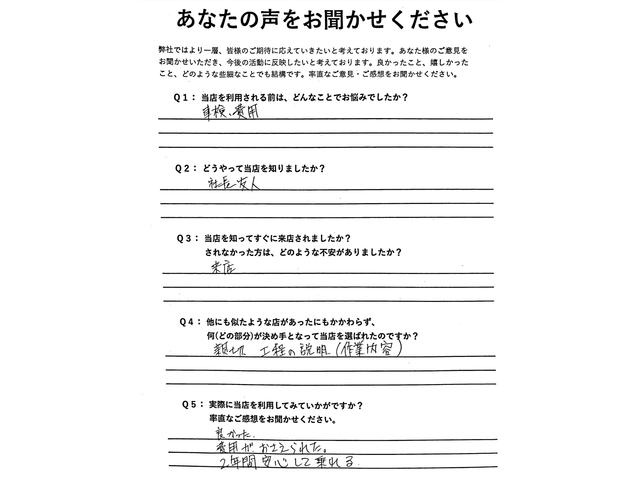 あなたの声をお聞かせください
弊社ではより一層、皆様のご期待に応えていきたいと考えております。あなた様のご意見を
お聞かせいただき、今後の活動に反映したいと考えております。良かったこと、嬉しかった
こと、どのような些細なことでも結構です。率直なご意見・ご感想をお聞かせください。
Q1： 当店を利用される前は、どんなことでお悩みでしたか？
車検、費用
Q2： どうやって当店を知りましたか？
社長 友人
Q3： 当店を知ってすぐに来店されましたか？
されなかった方は、どのような不安がありましたか？
来店
Q4： 他にも似たような店があったにもかかわらず、
何(どの部分)が決め手となって当店を選ばれたのですか？
親切 工程の説明（作業内容）
Q5： 実際に当店を利用してみていかがですか？
率直なご感想をお聞かせください。
良かった。
費用がおさえられた。
2年間安心して乗れる